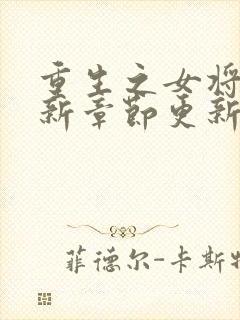 重生之女将
新章节更新
菲德尔-卡斯特